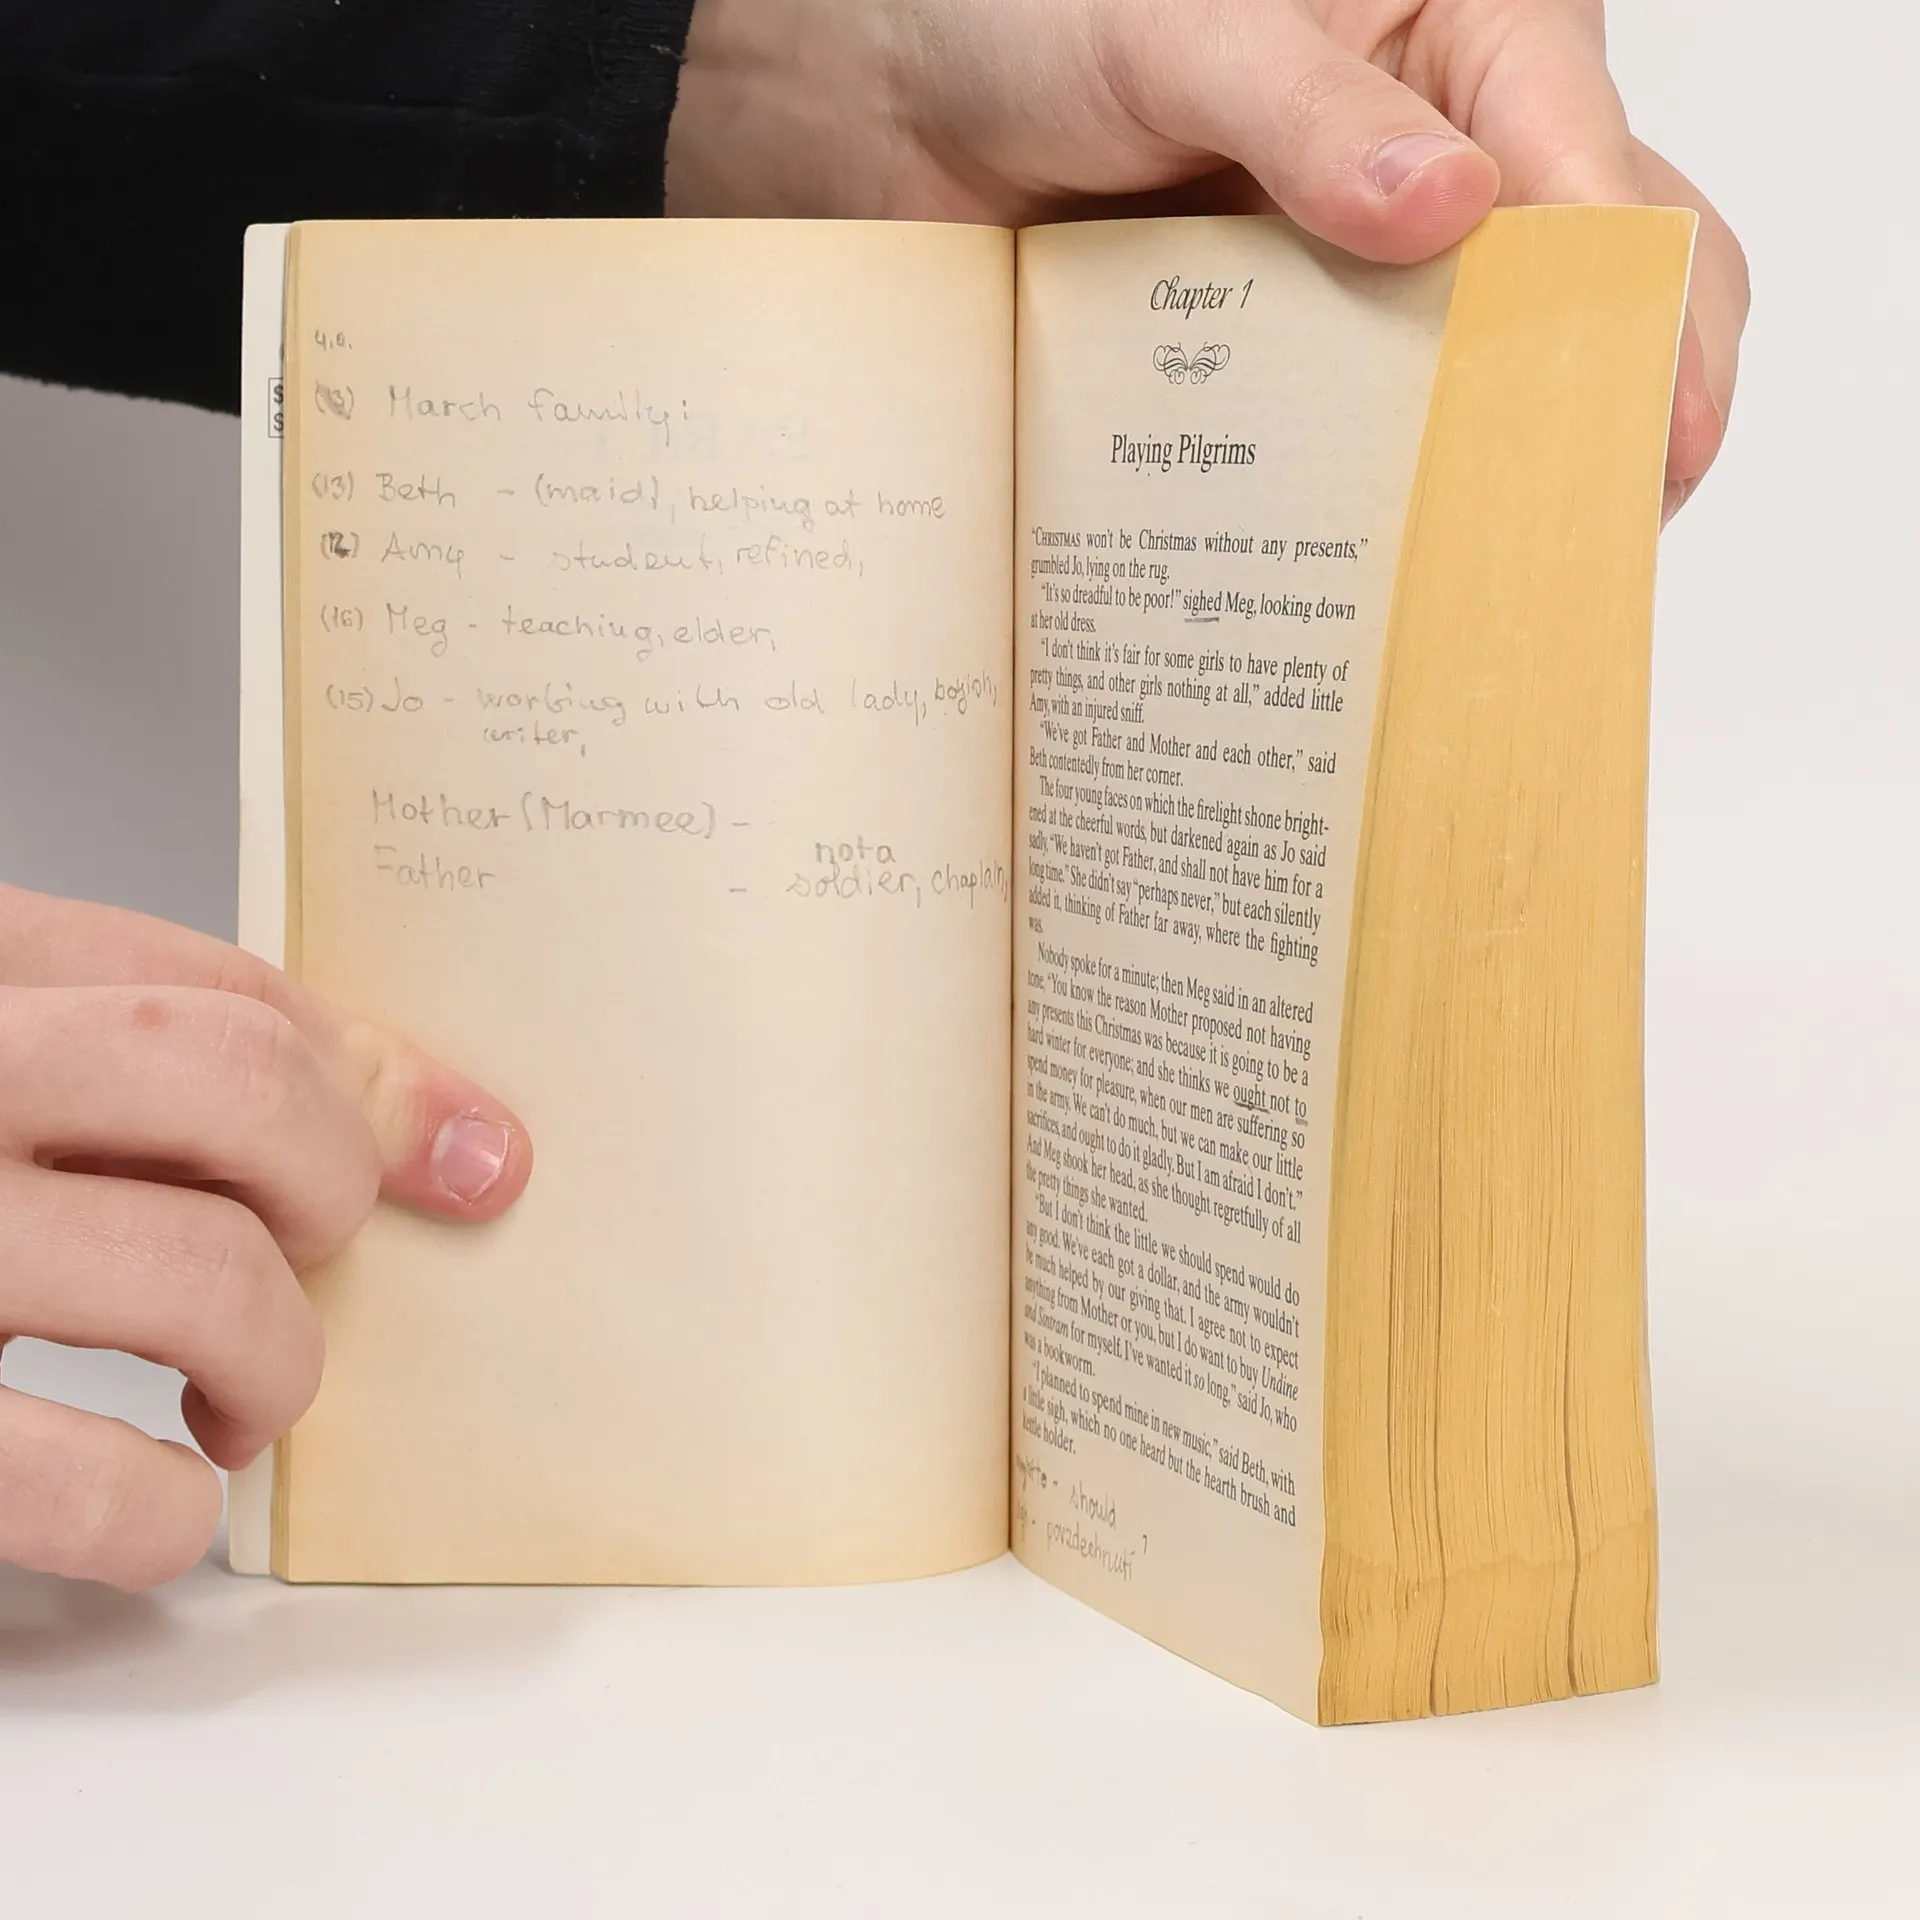 (13) March family:
(13) Beth - (maid), helping at home
(12) Amy - student, refined,
(16) Meg - teaching, elder,
(15) Jo - working with old lady, boyish,
writer,
Mother (Marmee) -
not a
Father - soldier, chaplain,
Chapter 1
Playing Pilgrims
"CHRISTMAS won't be Christmas without any presents,"
grumbled Jo, lying on the rug.
"It's so dreadful to be poor!" sighed Meg, looking down
at her old dress.
"I don't think it's fair for some girls to have plenty of
pretty things, and other girls nothing at all," added little
Amy, with an injured sniff.
"We've got Father and Mother and each other," said
Beth contentedly from her corner.
The four young faces on which the firelight shone bright-
ened at the cheerful words, but darkened again as Jo said
sadly, "We haven't got Father, and shall not have him for a
long time." She didn't say "perhaps never," but each silently
added it, thinking of Father far away, where the fighting
was.
Nobody spoke for a minute; then Meg said in an altered
tone, "You know the reason Mother proposed not having
any presents this Christmas was because it is going to be a
hard winter for everyone; and she thinks we ought not to
spend money for pleasure, when our men are suffering so
in the army. We can't do much, but we can make our little
sacrifices, and ought to do it gladly. But I am afraid I don't."
And Meg shook her head, as she thought regretfully of all
the pretty things she wanted.
"But I don't think the little we should spend would do
any good. We've each got a dollar, and the army wouldn't
be much helped by our giving that. I agree not to expect
anything from Mother or you, but I do want to buy Undine
and Sintram for myself. I've wanted it so long," said Jo, who
was a bookworm.
"I planned to spend mine in new music," said Beth, with
a little sigh, which no one heard but the hearth brush and
kettle holder.
- should
7
- povzdechnutí